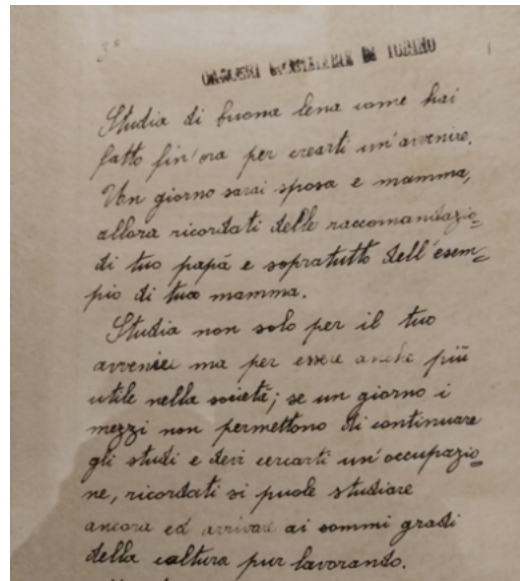 3°
CARCERI GIUDIZIARIE DI TORINO
Studia di buona lena come hai
fatto fin'ora per crearti un'avvenire.
Un giorno sarai sposa e mamma,
allora ricordati delle raccomandazio-
di tuo papà e sopratutto dell'esem-
pio di tua mamma.
Studia non solo per il tuo
avvenire ma per essere anche più
utile nella società; se un giorno i
mezzi non permettono di continuare
gli studi e devi cercarti un'occupazio-
ne, ricordati si puole studiare
ancora ed arrivare ai sommi gradi
della coltura pur lavorando.